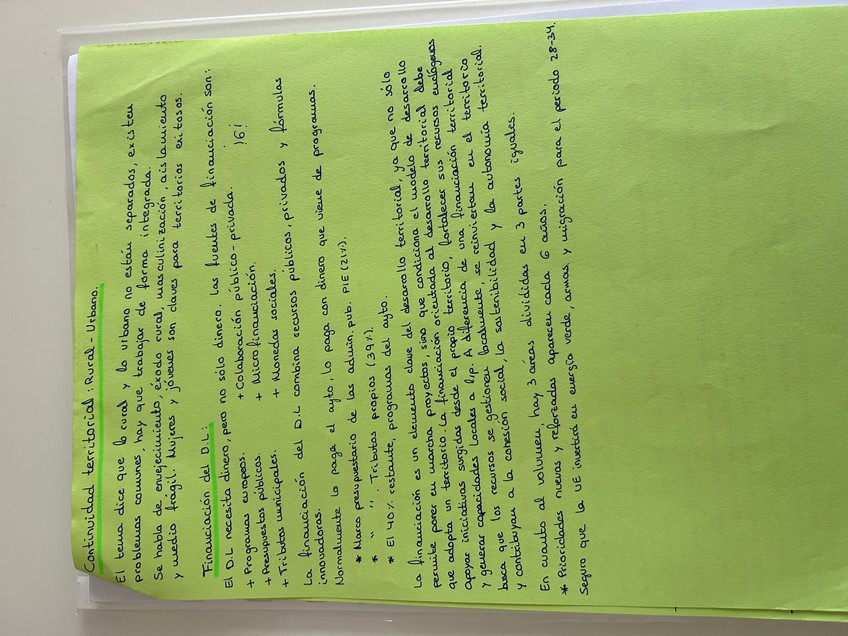 Continuidad territorial: Rural - Urbano.
El tema dice que lo rural y lo urbano no están separados, existen
problemas comunes, hay que trabajar de forma integrada.
Se habla de envejecimiento, éxodo rural, masculinización, aislamiento
y medio frágil. Mujeres y jóvenes son claves para territorios exitosos.
Financiación del D.L:
El D.L necesita dinero, pero no sólo dinero. Las fuentes de financiación son:
+ Programas europeos. + Colaboración público-privada. ¡6!
+ Presupuestos públicos. + Microfinanciación.
+ Tributos municipales. + Monedas sociales.
La financiación del D.L combina recursos públicos, privados y fórmulas
innovadoras.
Normalmente lo paga el ayto, lo paga con dinero que viene de programas.
* Marco presupuestario de las admin. pub. PIE (21%).
* " " . Tributos propios (39%).
* El 40% restante, programas del ayto.
La financiación es un elemento clave del desarrollo territorial, ya que no sólo
permite poner en marcha proyectos, sino que condiciona el modelo de desarrollo
que adopta un territorio. La financiación orientada al desarrollo territorial debe
apoyar iniciativas surgidas desde el propio territorio, fortalecer sus recursos endógenos
y generar capacidades locales a l/p. A diferencia de una financiación territorial
busca que los recursos se gestionen localmente, se reinviertan en el territorio
y contribuyan a la cohesión social, la sostenibilidad y la autonomía territorial.
En cuanto al volumen, hay 3 áreas divididas en 3 partes iguales.
* Prioridades nuevas y reforzadas aparecen cada 6 años.
Seguro que la UE invertirá en energía verde, armas y migración para el periodo 28-34.